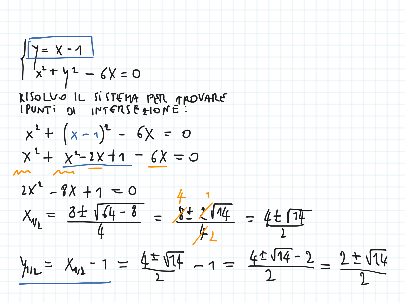 y = x - 1
x² + y² - 6x = 0
RISOLVO IL SISTEMA PER TROVARE
I PUNTI DI INTERSEZIONE:
x² + (x - 1)² - 6x = 0
x² + x² - 2x + 1 - 6x = 0
2x² - 8x + 1 = 0
x₁/₂ = (8 ± √(64 - 8))/4 = (8 ± 2√14)/4 4 1 2 = (4 ± √14)/2
y₁/₂ = x₁/₂ - 1 = (4 ± √14)/2 - 1 = (4 ± √14 - 2)/2 = (2 ± √14)/2